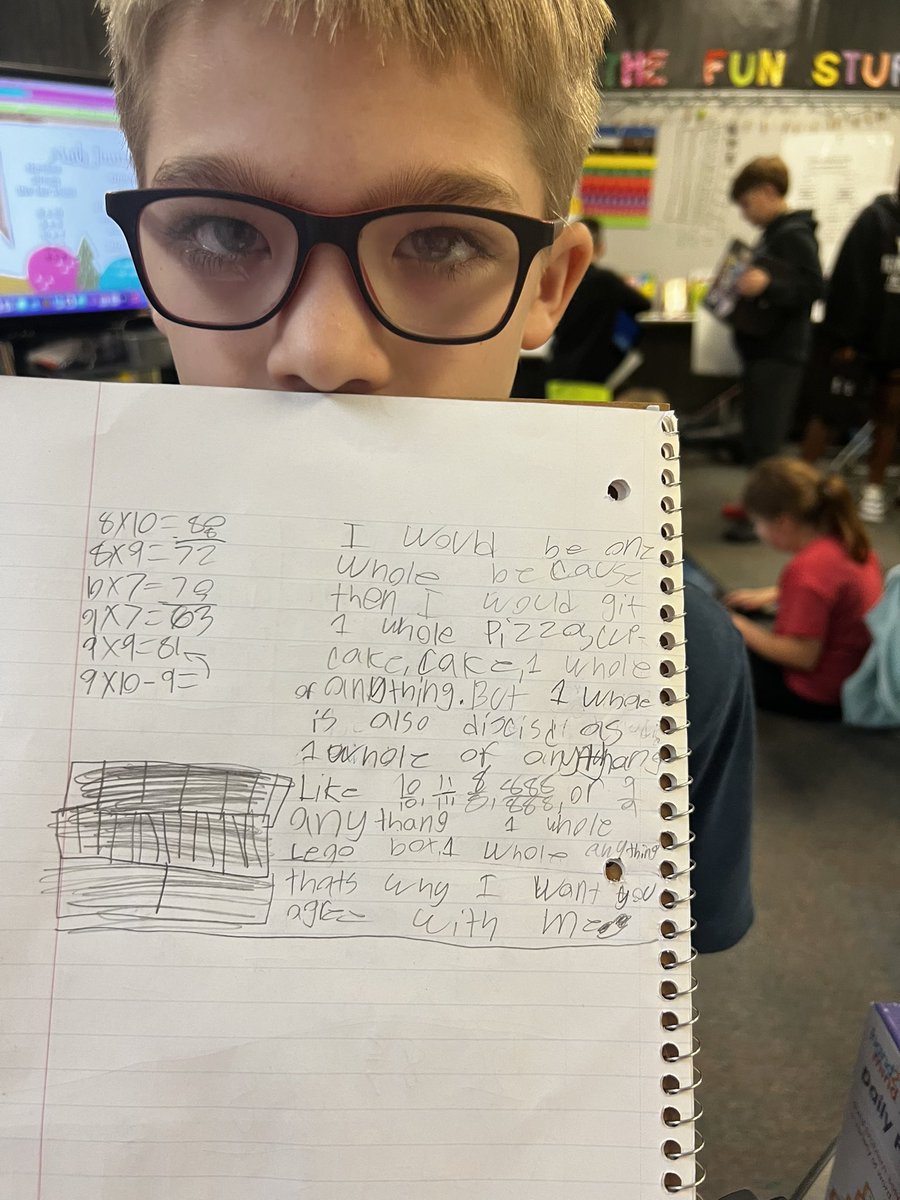 THE FUN STUF
8x10=80
8x9=72
10x7=70
9x7=63
9x9=81
9x10-9=
I would be one
whole because
then I would git
1 whole Pizza, cup-
cake, cake, 1 whole
of anything. But 1 whole
is also as
1 whole of anythang
Like 10/10, 11/11, 8/8, 888/888, or 2/2
any thang 1 whole
Lego box, 1 whole anything
thats why I want you
agre with me
Daily